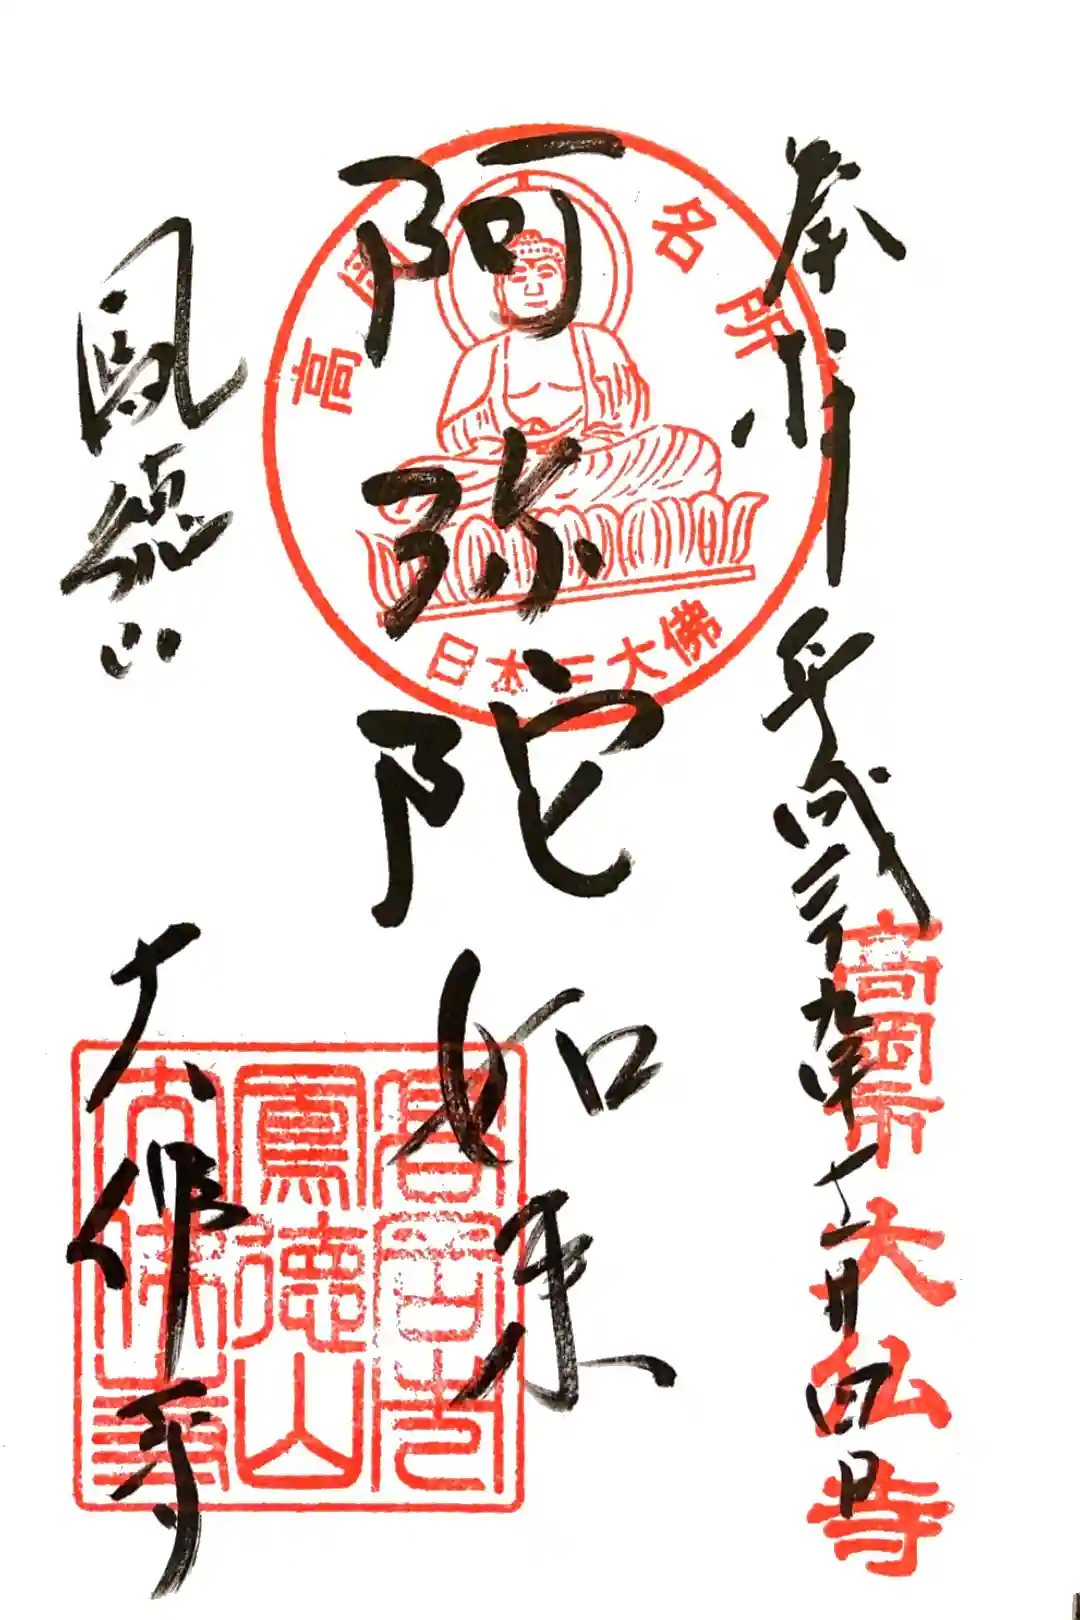 奉拝
平成二十九年十一月四日
高岡市 大仏寺
高岡名所
日本三大佛
阿弥陀如来
鳳徳山
大佛寺
高岡
鳳徳山
大佛寺